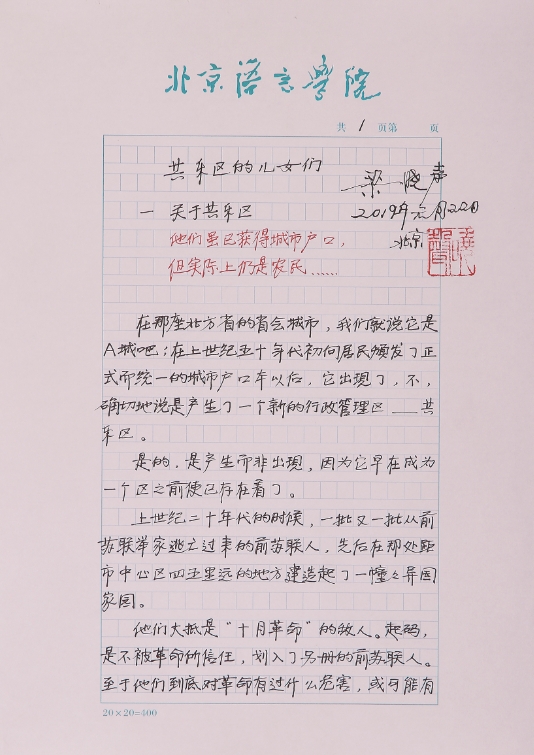 北京语言学院
共 1 页第 页
共乐区的儿女们
梁晓声
一 关于共乐区
2019年元月22日
他们虽已获得城市户口,
北京
但实际上仍是农民……
在那座北方省的省会城市,我们就说它是
A城吧;在上世纪五十年代初向居民颁发了正
式而统一的城市户口本以后,它出现了,不,
确切地说是产生了一个新的行政管理区——共
乐区。
是的,是产生而非出现,因为它早在成为
一个区之前便已存在着了。
上世纪二十年代的时候,一批又一批从前
苏联举家逃亡过来的前苏联人,先后在那处距
市中心区四五里远的地方建造起了一幢々异国
家园。
他们大抵是“十月革命”的敌人。起码,
是不被革命所信任,划入了另册的前苏联人。
至于他们到底对革命有过什么危害,或可能有
20×20=400